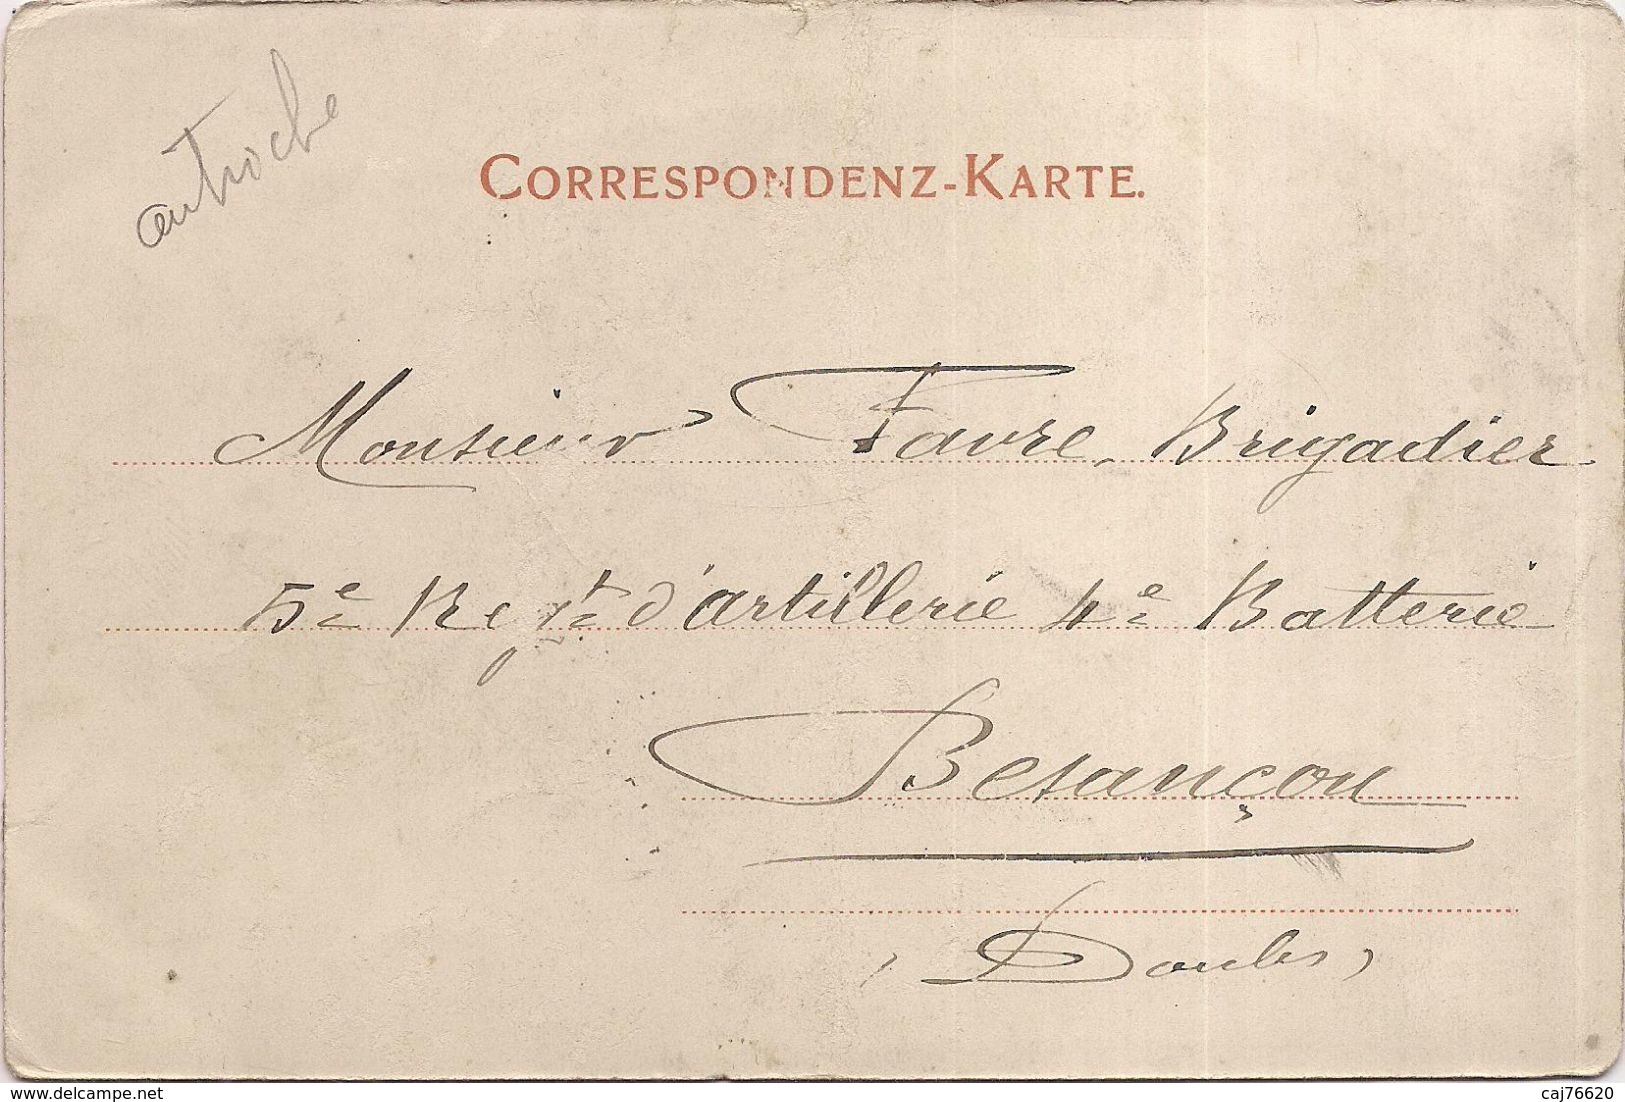 autriche
CORRESPONDENZ-KARTE.
Monsieur Favre, Brigadier
5e Regt d'artillerie 4e Batterie
Besançon
(Doubs)
delcampe.net
caj76620